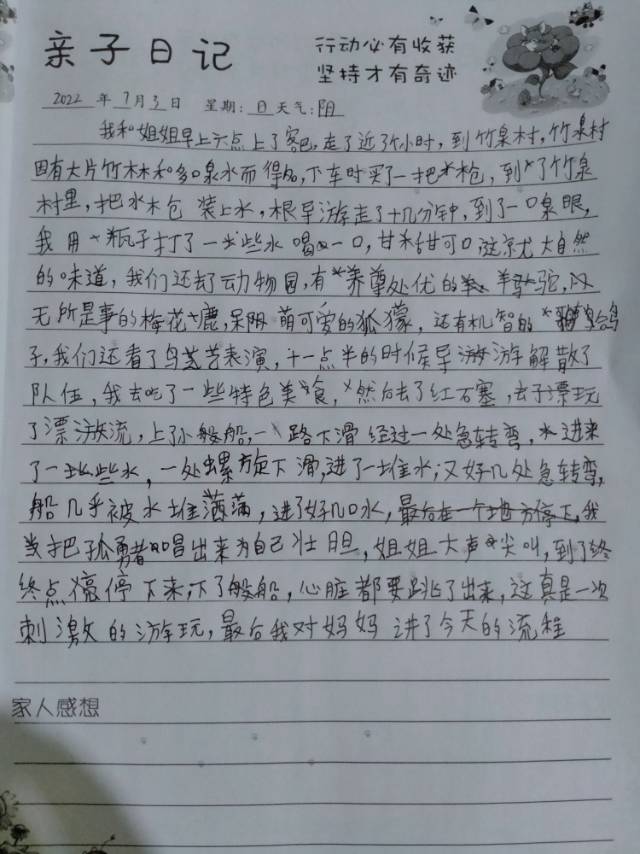 亲子日记
行动必有收获
坚持才有奇迹
2022年7月3日 星期:日 天气:阴
我和姐姐早上六点上了客巴,走了近了个小时,到竹泉村,竹泉村
因有大片竹林和多口泉水而得名,下车时买了一把水枪,到了竹泉
村里,把水枪装上水,根导游走了十几分钟,到了一口泉眼,
我用瓶子打了一些水喝一口,甘甜可口这就大自然
的味道,我们还去了动物园,有养尊处优的羊驼,
无所是事的梅花鹿,呆萌可爱的狐獴,还有机智的鸽
子,我们还看了鸟艺表演,十一点半的时候导游解散了
队伍,我去吃了一些特色美食,然后去了红石寨,去了漂玩
了漂流,上了小般船,一路下滑经过一处急转弯,进来
了一些水,一处螺旋下滑,进了一堆水,又好几处急转弯,
船几乎被水堆满,进了好几口水,最后在一个地方停下,我
当把孤勇者唱出来为自己壮胆,姐姐大声尖叫,到了终
终点停下来,下了般船,心脏都要跳了出来,这真是一次
刺激的游玩,最后我对妈妈讲了今天的流程
家人感想